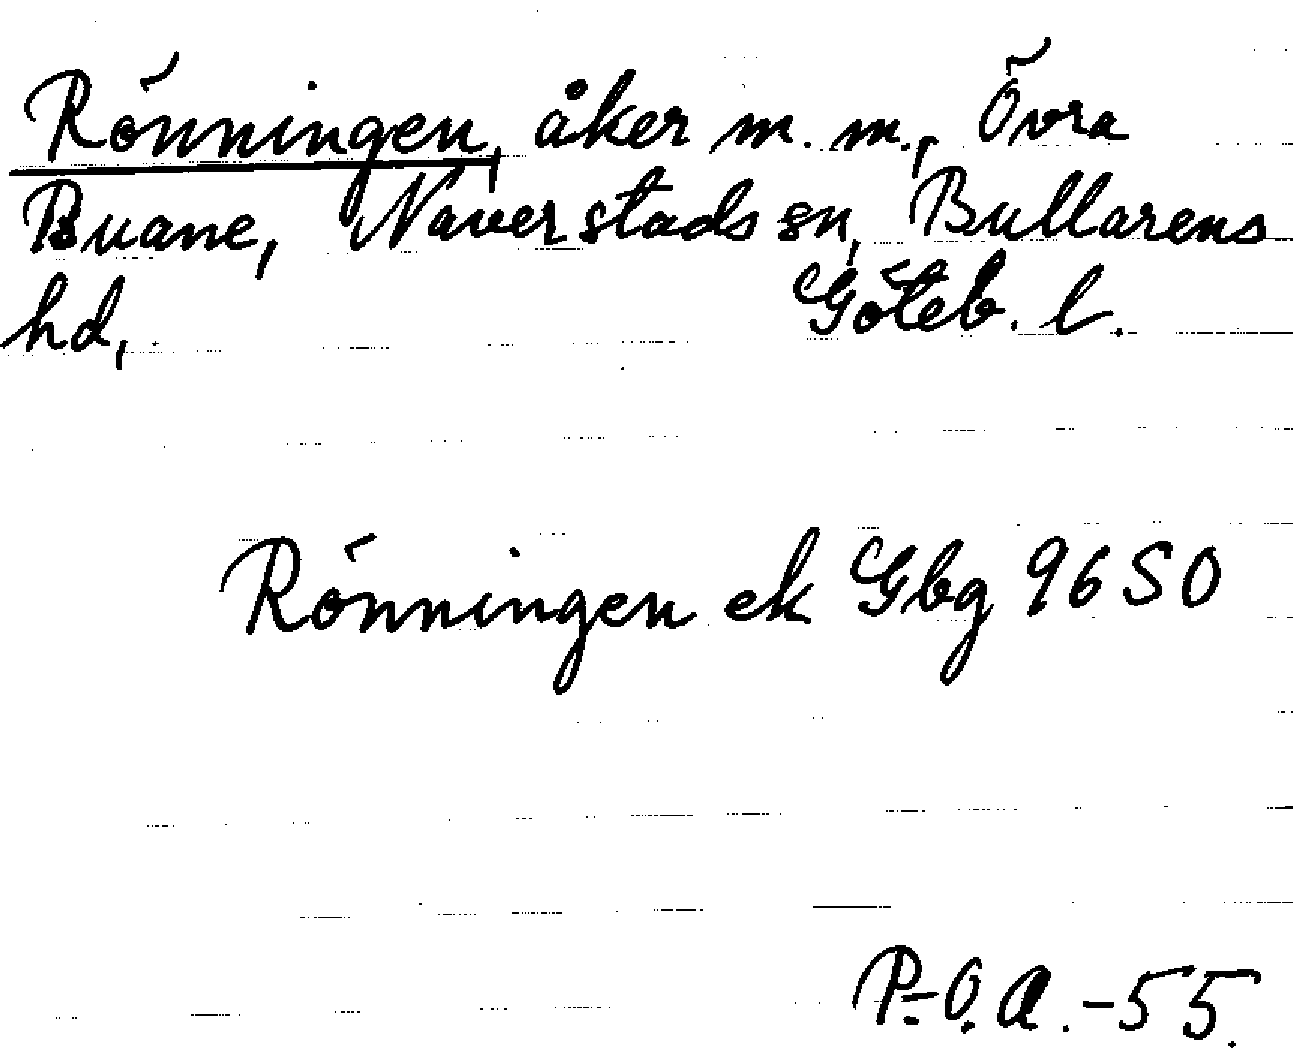 Rönningen, åker m. m., Övra
Buane, Naverstads sn, Bullarens
hd, Göteb. l.
Rönningen ek Gbg 9650
P.-O. A. -55.